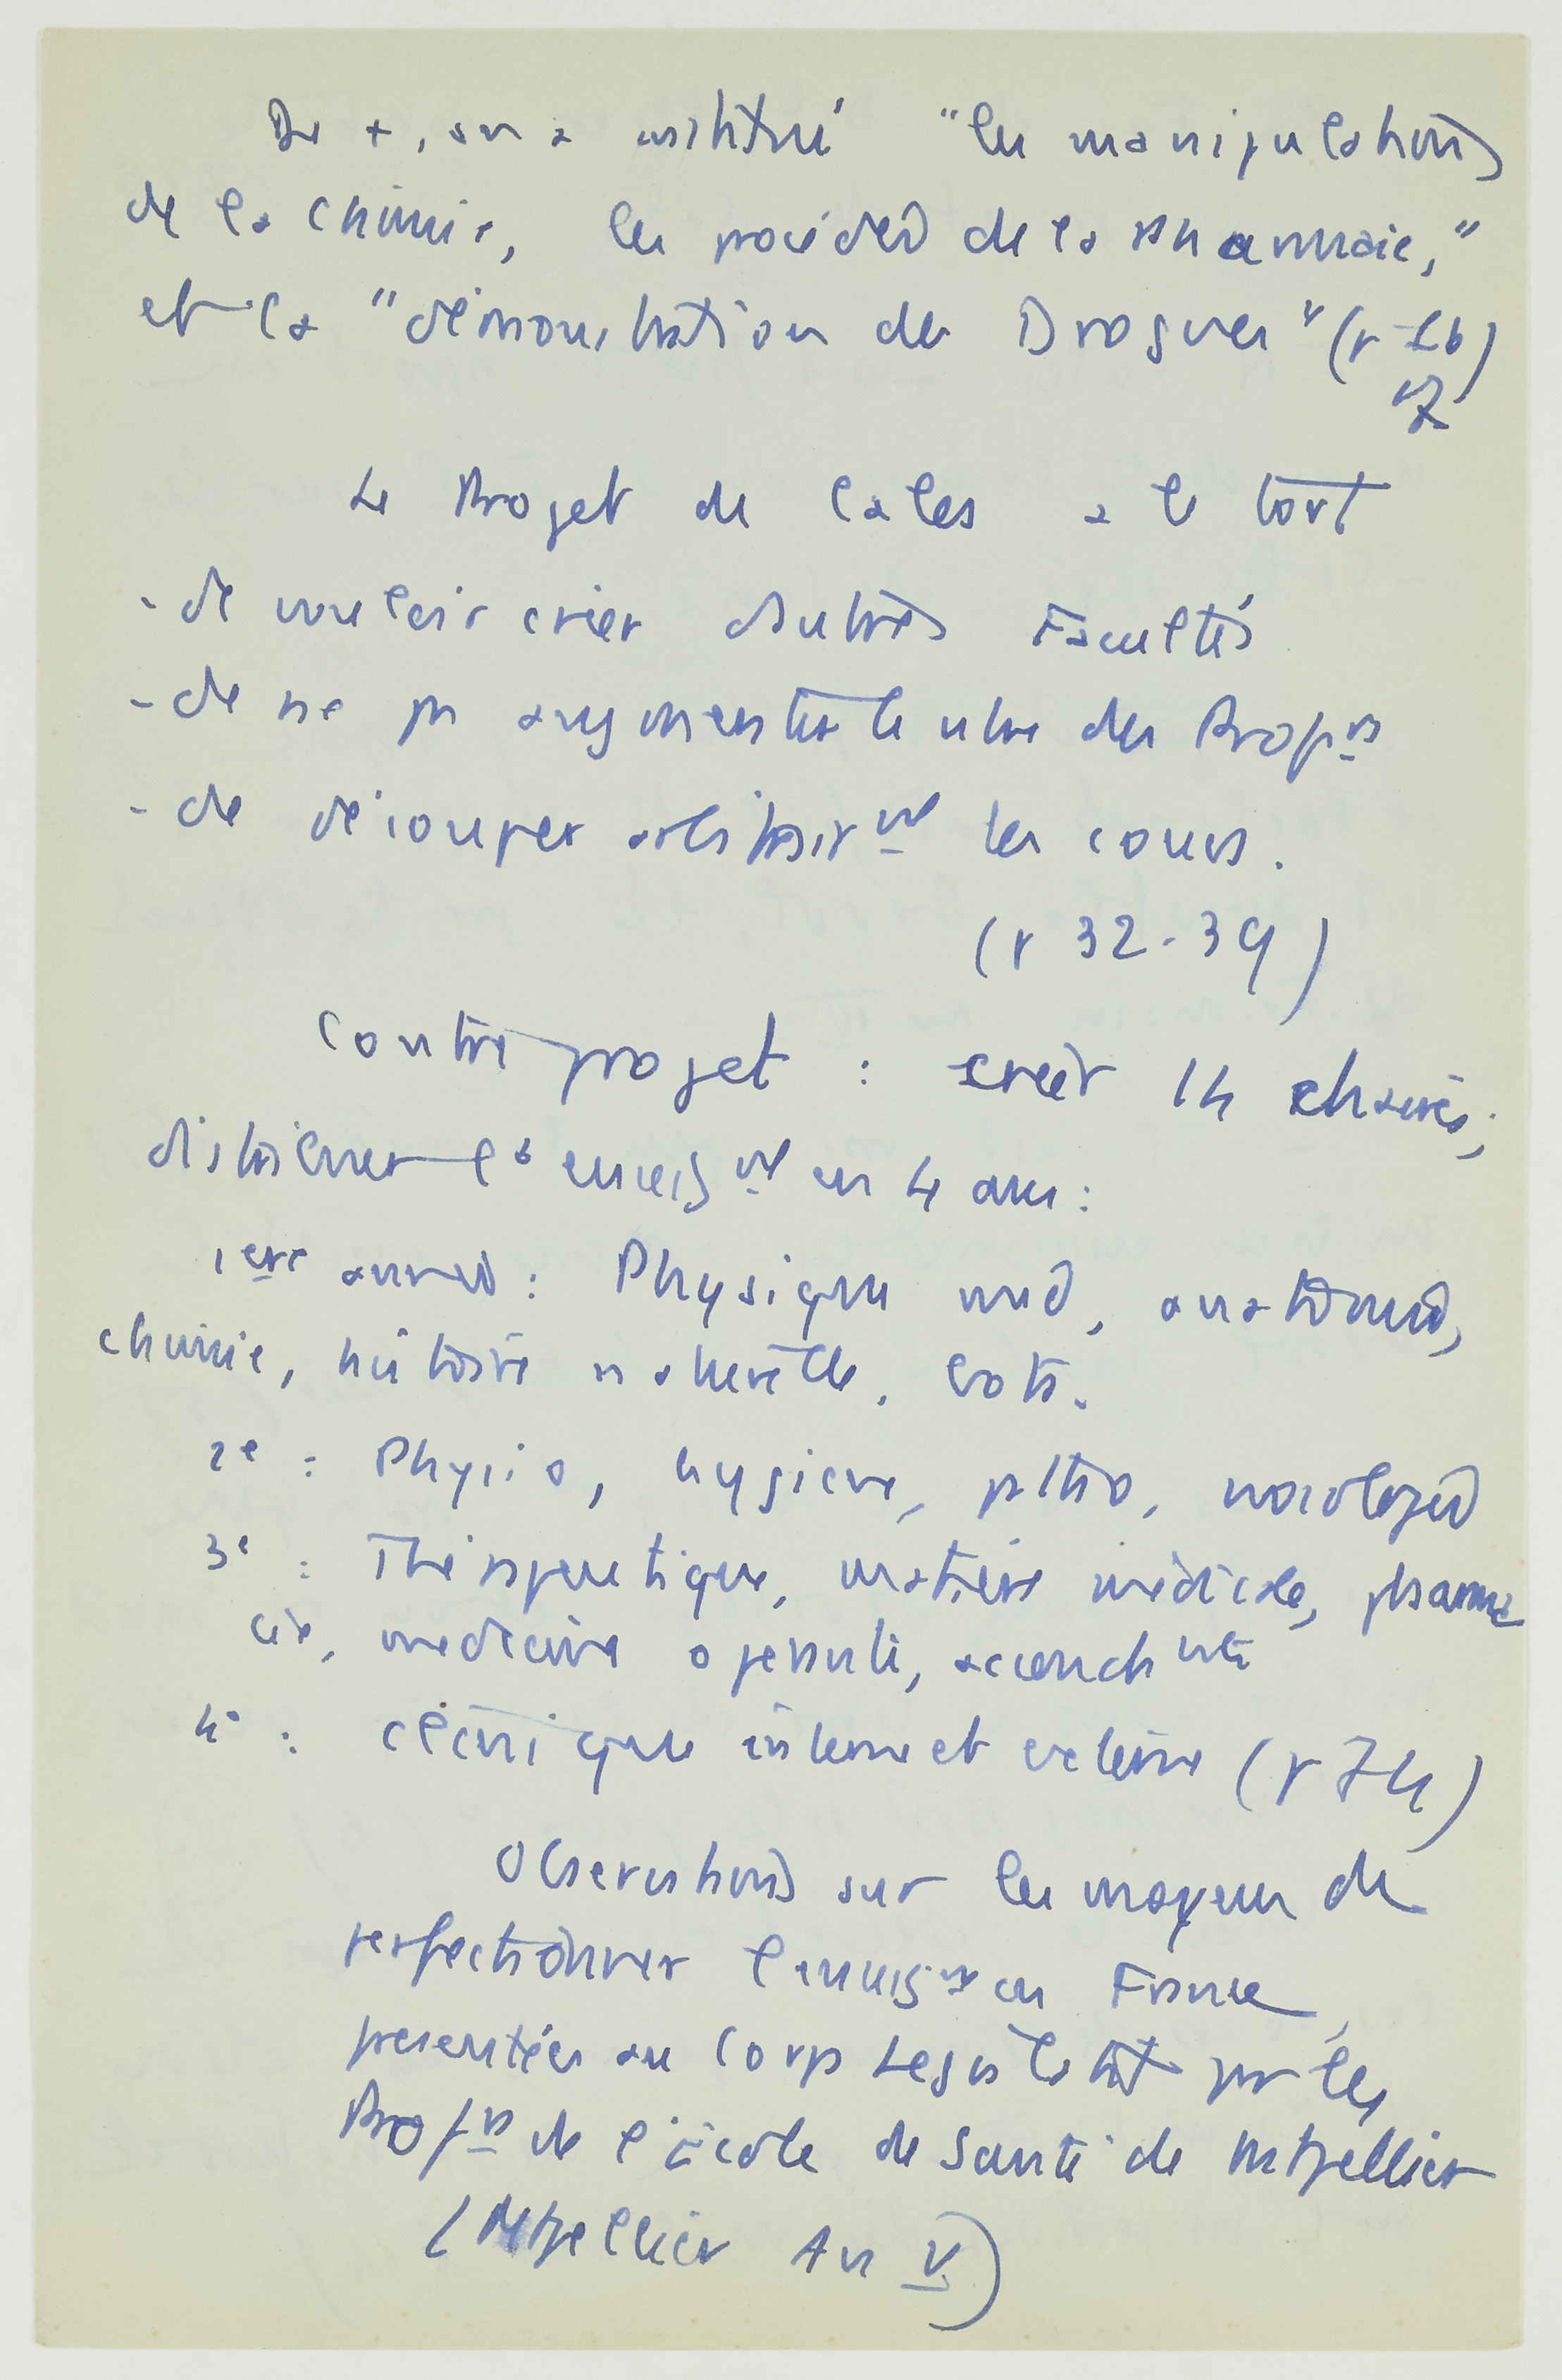 De +, on a institué "les manipulations
de la chimie, les procédés de la Pharmacie,"
et la "démonstration des Drogues" (p 26)
27
Le Projet de Cales a le tort
- de vouloir créer d'autres Facultés
- de ne pas augmenter le nbre des Profrs
- de découper arbitrairmt les cours.
(p 32-39)
Contre projet : créer 14 chaires ;
distribuer les enseigmt en 4 ans :
1ere année : Physique med, anatomie,
chimie, histoire naturelle, bota.
2e : Physio, hygiene, patho, nosologie
3e : Thérapeutique, matière médicale, pharma
cie, medecine operatoi, accouchmts
4e : clinique interne et externe (p 74)
Observations sur les moyens de
perfectionner l'enseigmt en France,
presentées au Corps Legislatif par les
Profrs de l'école de Santé de Mtpellier
(Mtpellier An V)